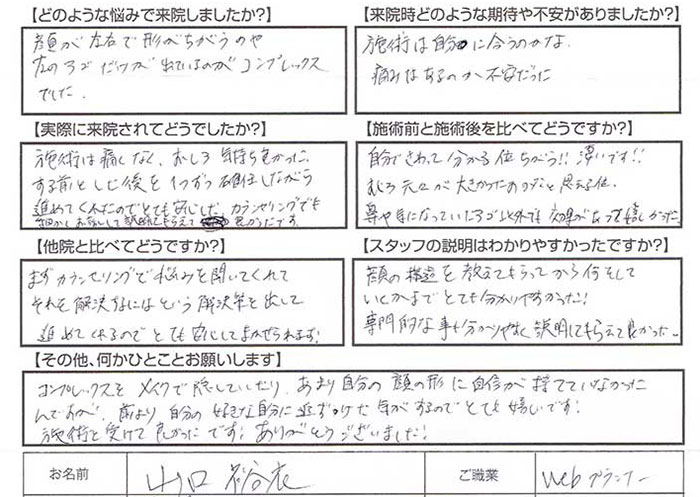 【どのような悩みで来院しましたか?】
顔が左右で形がちがうのや
左のエラだけが出ているのがコンプレックス
でした.
【来院時どのような期待や不安がありましたか?】
施術は自分に合うのかな.
痛みはあるのか不安だった
【実際に来院されてどうでしたか?】
施術は痛くなく、むしろ気持ち良かった.
する前とした後を1つずつ確認しながら
進めてくれたのでとても安心した カウンセリングでも
細かくお話しして説明してもらえて 良かったです.
【施術前と施術後を比べてどうですか?】
自分でさわって分かる位ちがう!! 凄いです!!
むしろ元々が大きかったあのかなと思える位.
鼻や目になっていたエラ以外でも効果があって嬉しかった.
【他院と比べてどうですか?】
まずカウンセリングで悩みを聞いてくれて
それを解決するにはという解決策を出して
進めてくれるのでとても安心してまかせられます!
【スタッフの説明はわかりやすかったですか?】
顔の構造を教えてもらってから何をして
いくかまでとても分かりやすかった!
専門的な事も分かりやすく説明してもらえて良かった.
【その他、何かひとことお願いします】
コンプレックスをメイクで隠していたり、あまり自分の顔の形に自信が持てていなかった
んですが、前より自分の好きな自分に近づけた気がするのでとても嬉しいです!
施術を受けて良かったです! ありがとうございました!
お名前 山口 裕衣 ご職業 Webプランナー